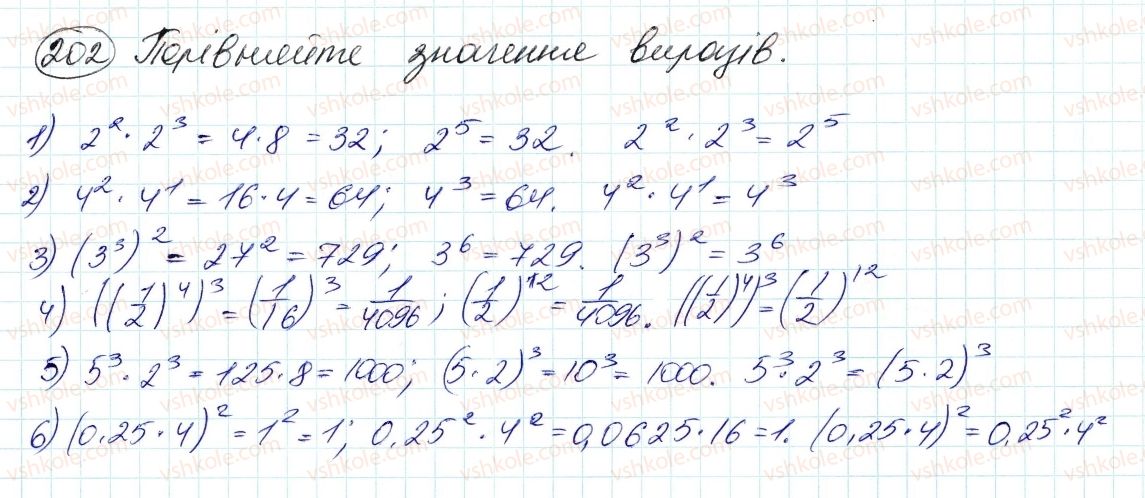 202 Порівняйте значення виразів.
1) 2² · 2³ = 4 · 8 = 32; 2⁵ = 32. 2² · 2³ = 2⁵
2) 4² · 4¹ = 16 · 4 = 64; 4³ = 64. 4² · 4¹ = 4³
3) (3³)² = 27² = 729; 3⁶ = 729. (3³)² = 3⁶
4) ((1/2)⁴)³ = (1/16)³ = 1/4096; (1/2)¹² = 1/4096. ((1/2)⁴)³ = (1/2)¹²
5) 5³ · 2³ = 125 · 8 = 1000; (5 · 2)³ = 10³ = 1000. 5³ · 2³ = (5 · 2)³
6) (0,25 · 4)² = 1² = 1; 0,25² · 4² = 0,0625 · 16 = 1. (0,25 · 4)² = 0,25² · 4²
vshkole.com